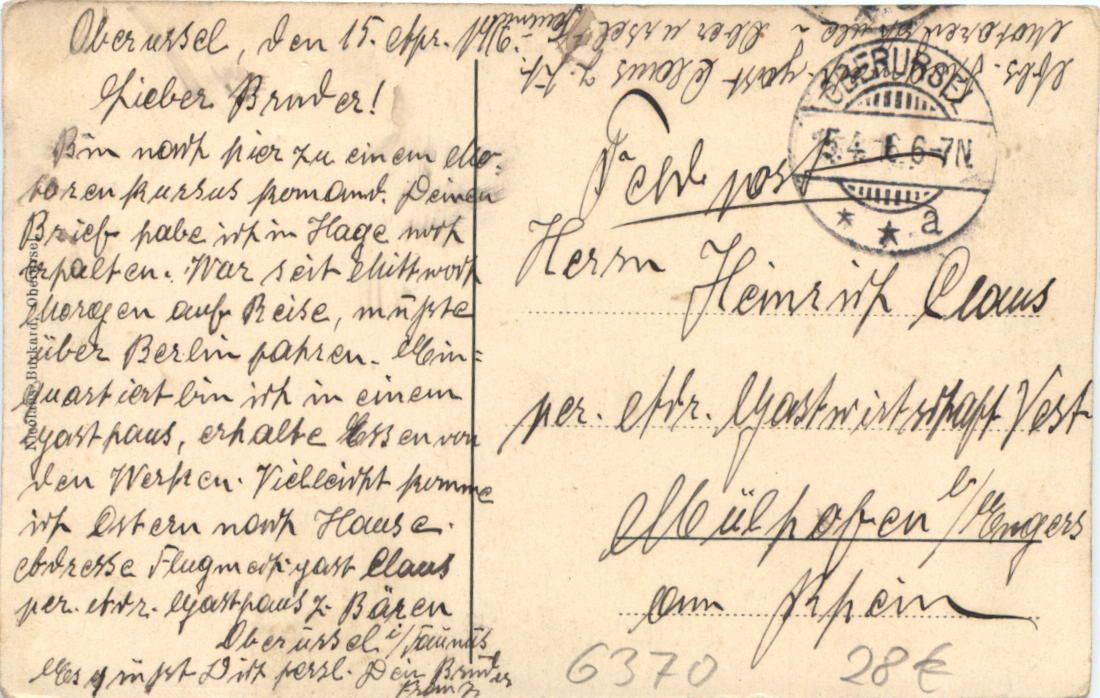 Oberursel, den 15. Apr. 1916.
Lieber Bruder!
Bin noch hier zu einem Mo-
torenkursus komand. Deinen
Brief habe ich in Hage noch
erhalten. War seit Mittwoch
Morgen auf Reise, müßte
über Berlin fahren. Ein=
quartiert bin ich in einem
Gasthaus, erhalte Essen von
den Werken. Vielleicht komme
ich Ostern nach Hause.
Adresse Flugmech.gast Claus
per. Adr. Gasthaus z. Bären
Oberursel i/Taunus
Es grüßt Dich herzl. Dein Bruder
Franz
Claus
Motorenschule - Oberursel Taunus
OBERURSEL
15.4.16.6-7N
a
Feldpost
Herrn
Heinrich Claus
per. Adr. Gastwirtschaft Vest
Mülhofen b/Engers
am Rhein
Burkard, Oberursel
6370 28€